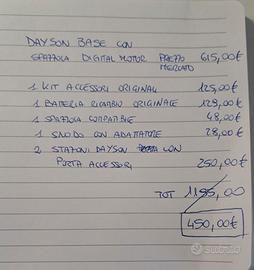 DAYSON BASE CON
SPAZZOLA DIGITAL MOTOR PREZZO 615,00€
MERCATO
1 KIT ACCESSORI ORIGINALI 125,00€
1 BATTERIA RICAMBIO ORIGINALE 129,00€
1 SPAZZOLA COMPATIBILE 48,00€
1 SNODO CON ADATTATORE 28,00€
2 STAZIONI DAYSON CON
PORTA ACCESSORI 250,00€
TOT 1195,00
450,00€
subito